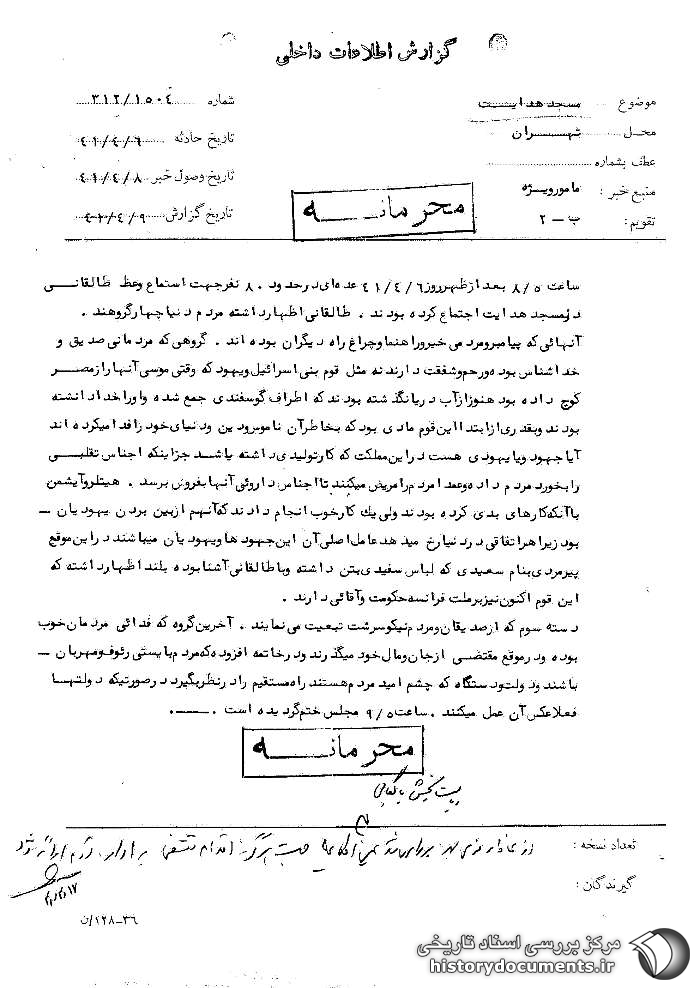 گزارش اطلاعات داخلی
موضوع مسجد هدایت
محل تهران
عطف بشماره
منبع خبر : مامور ویژه
تقویم : ب - ۲
شماره ۳۱۲/۱۵۰۴
تاریخ حادثه ۴۱/۴/۶
تاریخ وصول خبر ۴۱/۴/۸
تاریخ گزارش ۴۱/۴/۹
محرمانه
ساعت ۸/۵ بعد از ظهر روز ۴۱/۴/۶ عده‌ای در حدود ۸۰ نفر جهت استماع وعظ طالقانی
در مسجد هدایت اجتماع کرده بودند . طالقانی اظهار داشته مردم دنیا چهار گروهند .
آنهائی که پیامبر و مردمی خیر و راهنما و چراغ راه دیگران بوده اند . گروهی که مردمانی صدیق و
خداشناس بوده و رحم و شفقت دارند نه مثل قوم بنی اسرائیل و یهود که وقتی موسی آنها را از مصر
کوچ داده بود هنوز از آب دریا نگذشته بودند که اطراف گوسفندی جمع شده و او را خدا دانشته
بودند و بقدری از ابتدا این قوم مادی بود که بخاطر آن ناموس و دین و دنیای خود را فدا میکرده اند
آیا جهود و یا یهودی هست در این مملکت که کار تولیدی داشته باشد جز اینکه اجناس تقلبی
را بخورد مردم داده و عمدا مردم را مریض میکنند تا اجناس داروئی آنها بفروش برسد . هیتلر و آیشمن
با آنکه کارهای بدی کرده بودند ولی یک کار خوب انجام دادند که آنهم از بین بردن یهودیان -
بود زیرا هر اتفاقی در دنیا رخ میدهد عامل اصلی آن این جهودها و یهودیان میباشند در این موقع
پیرمردی بنام سعیدی که لباس سفیدی بتن داشته و با طالقانی آشنا بوده بلند اظهار داشته که
این قوم اکنون نیز بر ملت فرانسه حکومت و آقائی دارند .
دسته سوم که از صدیقان و مردم نیکو سرشت تبعیت می نمایند . آخرین گروه که فدائی مردمان خوب
بوده و در موقع مقتضی از جان و مال خود میگذرند و در خاتمه افزوده که مردم بایستی رئوف و مهربان -
باشند و دولت و دستگاه که چشم امید مردم هستند راه مستقیم را در نظر بگیرد در صورتیکه دولتها
فعلا عکس آن عمل میکنند . ساعت ۹/۵ مجلس ختم گردیده است .
محرمانه
تعداد نسخه :
گیرندگان :
۳۶-۱۲۸/ن
مرکز بررسی اسناد تاریخی
historydocuments.ir